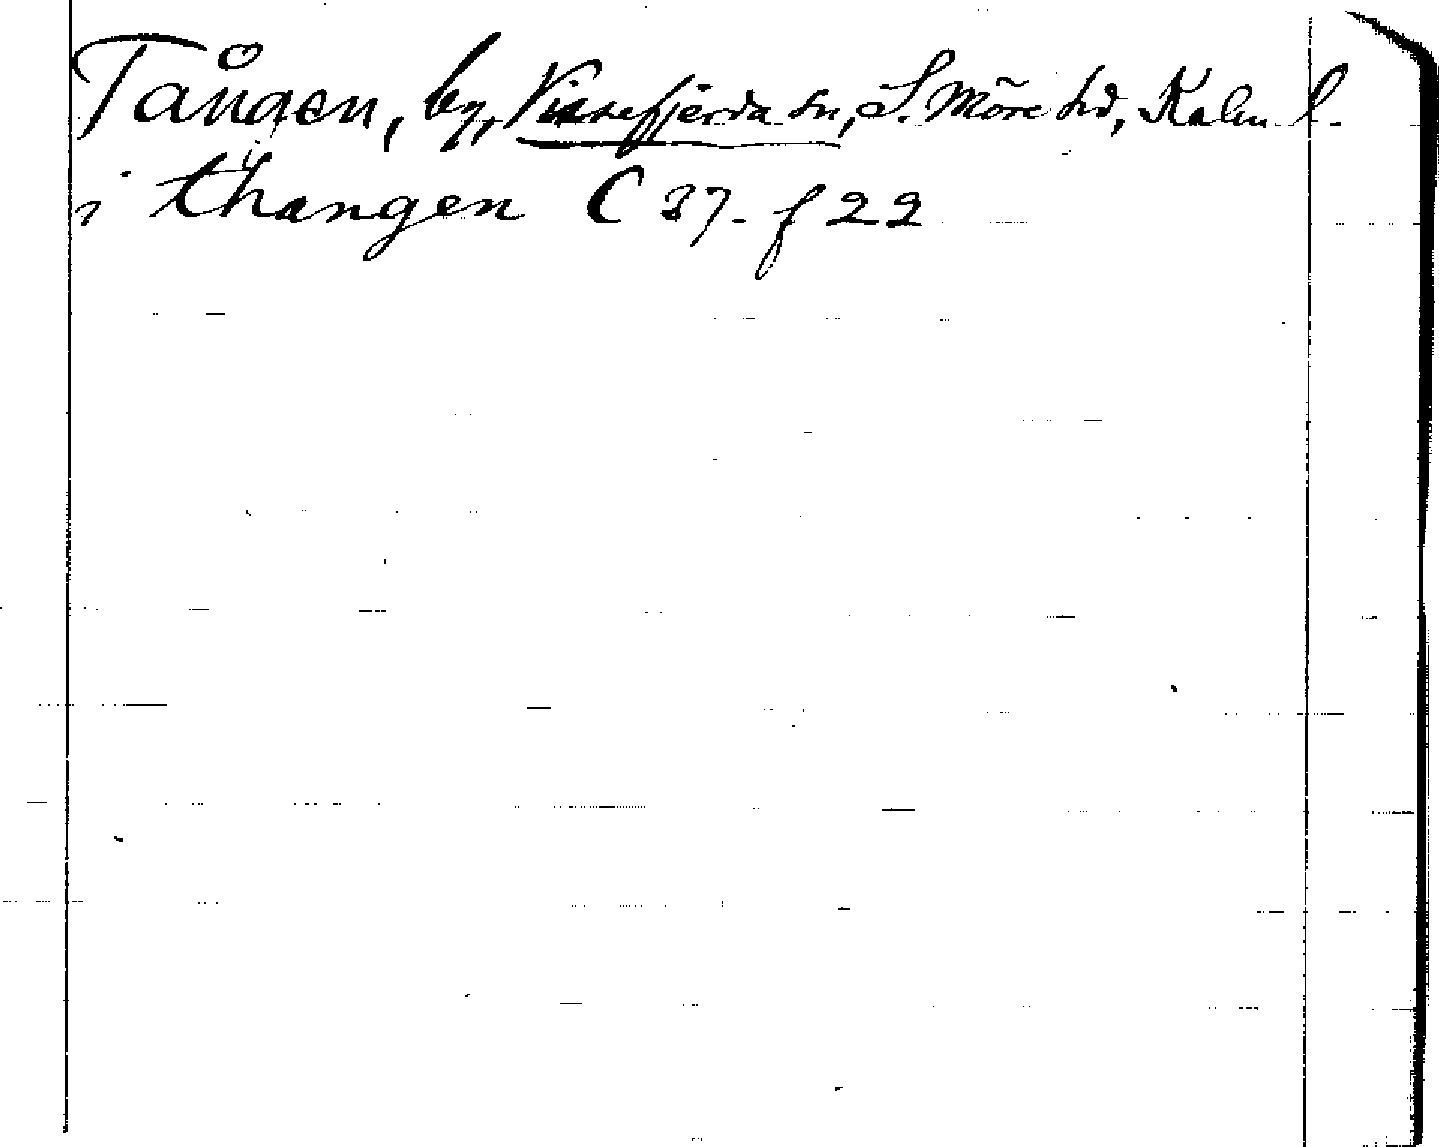 Tången, by, Vissefjerda sn, S. Möre hd, Kalm. l.
i thangen C 37. f 22